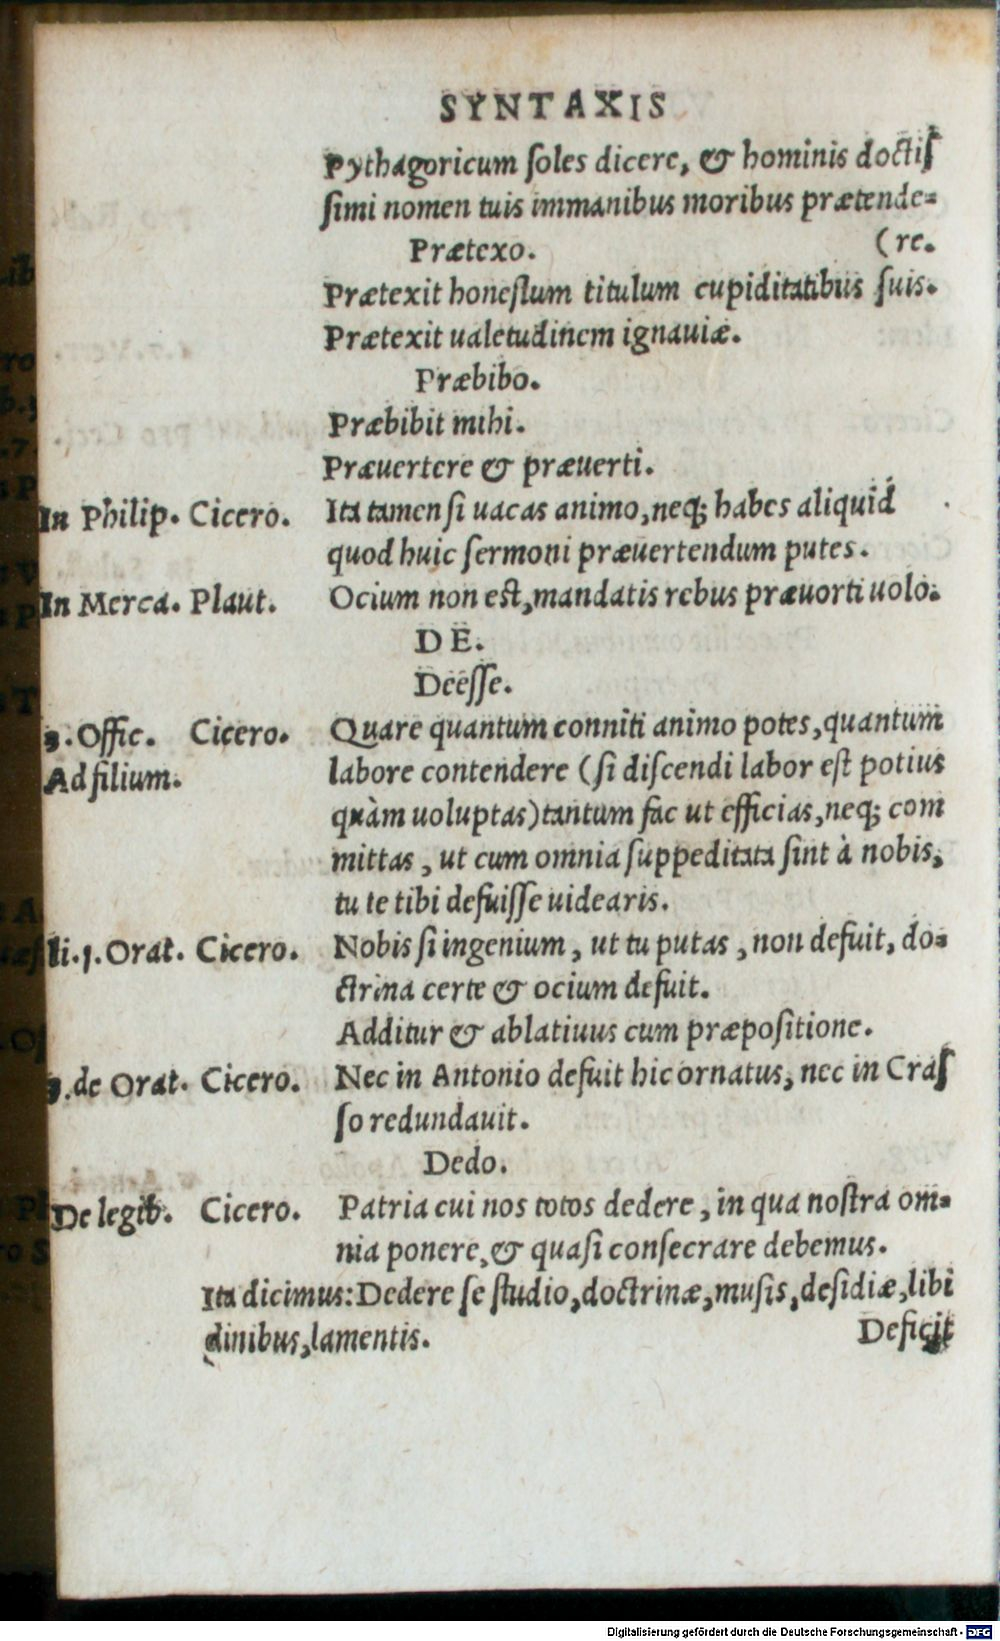 SYNTAXIS
Pythagoricum ſoles dicere, & hominis doctiſ
ſimi nomen tuis immanibus moribus prætende=
Prætexo. (re.
Prætexit honeſtum titulum cupiditatibus ſuis.
Prætexit ualetudinem ignauiæ.
Præbibo.
Præbibit mihi.
Præuertere & præuerti.
In Philip. Cicero. Ita tamen ſi uacas animo, neq; habes aliquid
quod huic ſermoni præuertendum putes.
In Merca. Plaut. Ocium non est, mandatis rebus præuorti uolo.
DE.
Deeſſe.
3. Offic. Cicero. Quare quantum conniti animo potes, quantum
Ad filium. labore contendere (ſi diſcendi labor est potius
quàm uoluptas) tantum fac ut efficias, neq; com
mittas, ut cum omnia ſuppeditata ſint à nobis,
tu te tibi defuiſſe uidearis.
li.1. Orat. Cicero. Nobis ſi ingenium, ut tu putas, non defuit, do=
ctrina certe & ocium defuit.
Additur & ablatiuus cum præpoſitione.
3. de Orat. Cicero. Nec in Antonio defuit hic ornatus, nec in Craſ
ſo redundauit.
Dedo.
De legib. Cicero. Patria cui nos totos dedere, in qua noſtra om=
nia ponere, & quaſi conſecrare debemus.
Ita dicimus: Dedere ſe ſtudio, doctrinæ, muſis, deſidiæ, libi
dinibus, lamentis. Deficit
Digitalisierung gefördert durch die Deutsche Forschungsgemeinschaft - DFG